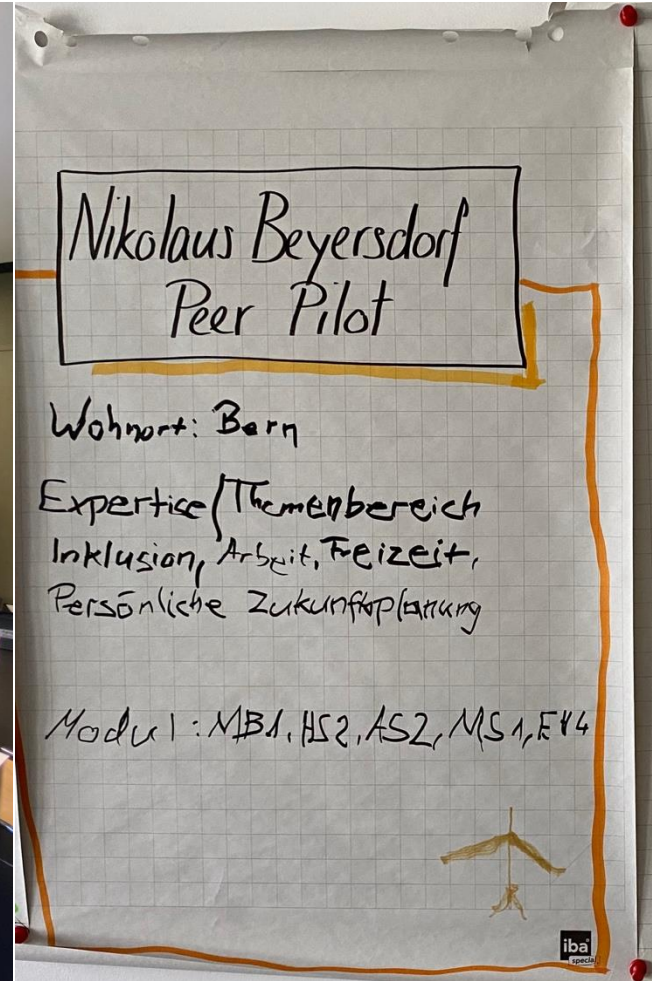 Nikolaus Beyersdorf
Peer Pilot
Wohnort: Bern
Expertise/Themenbereich
Inklusion, Arbeit, Freizeit,
Persönliche Zukunftsplanung
Modul: MB1, HS2, AS2, MS1,
iba
special